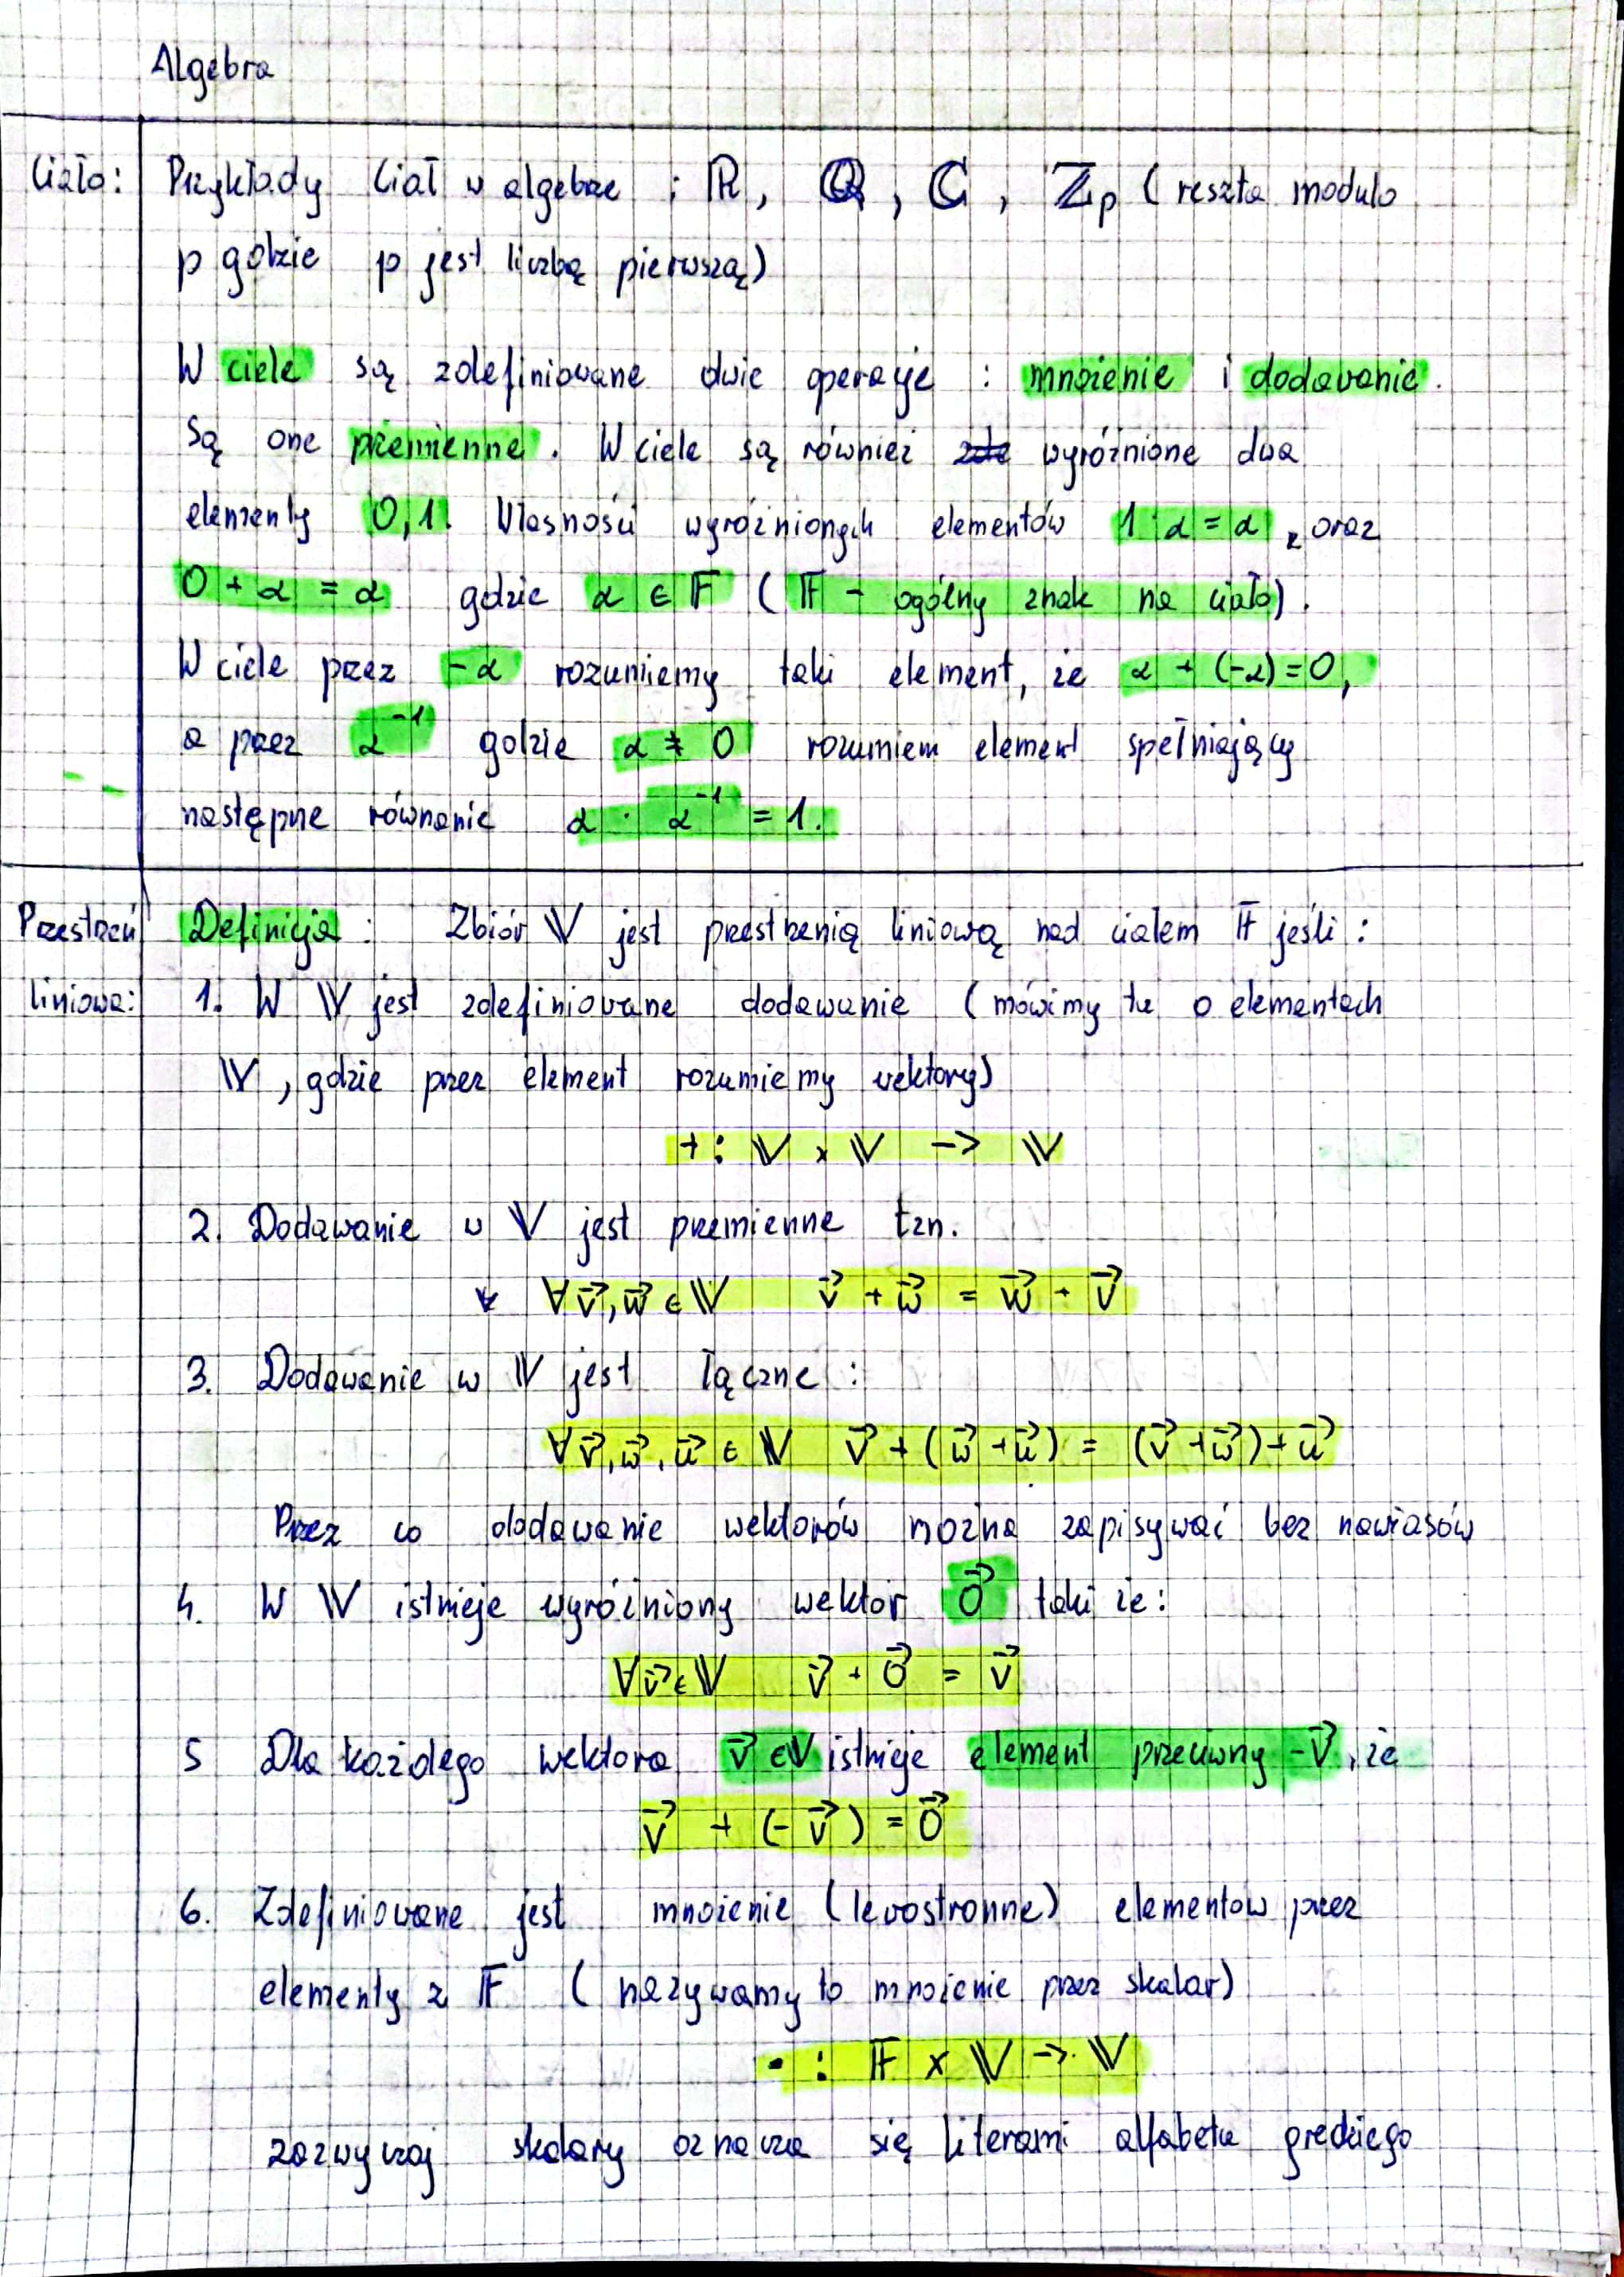 Algebra
Ciało: Przykłady Ciał w algebrze : ℝ, ℚ, ℂ, ℤp (reszta modulo
p gdzie p jest liczbą pierwszą)
W ciele są zdefiniowane dwie operacje : mnożenie i dodawanie.
Są one przemienne. W ciele są również wyróżnione dwa
elementy 0,1. Własności wyróżnionych elementów 1·α = α, oraz
0 + α = α gdzie α ∈ 𝔽 (𝔽 - ogólny znak na ciało).
W ciele przez -α rozumiemy taki element, że α + (-α) = 0,
a przez α⁻¹ gdzie α ≠ 0 rozumiem element spełniający
następne równanie α · α⁻¹ = 1.
Przestrzeń Definicja : Zbiór 𝕍 jest przestrzenią liniową nad ciałem 𝔽 jeśli :
liniowa: 1. W 𝕍 jest zdefiniowane dodawanie (mówimy tu o elementach
𝕍, gdzie przez element rozumiemy wektory)
+ : 𝕍 × 𝕍 -> 𝕍
2. Dodawanie w 𝕍 jest przemienne tzn.
∀ v⃗, w⃗ ∈ 𝕍 v⃗ + w⃗ = w⃗ + v⃗
3. Dodawanie w 𝕍 jest łączne :
∀ v⃗, w⃗, u⃗ ∈ 𝕍 v⃗ + (w⃗ + u⃗) = (v⃗ + w⃗) + u⃗
Przez co dodawanie wektorów można zapisywać bez nawiasów
4. W 𝕍 istnieje wyróżniony wektor 0⃗ taki że:
∀ v⃗ ∈ 𝕍 v⃗ + 0⃗ = v⃗
5 Dla każdego wektora v⃗ ∈ 𝕍 istnieje element przeciwny -v⃗, że
v⃗ + (-v⃗) = 0⃗
6. Zdefiniowane jest mnożenie (lewostronne) elementów przez
elementy z 𝔽 (nazywamy to mnożenie przez skalar)
• : 𝔽 × 𝕍 -> 𝕍
zazwyczaj skalary oznacza się literami alfabetu greckiego